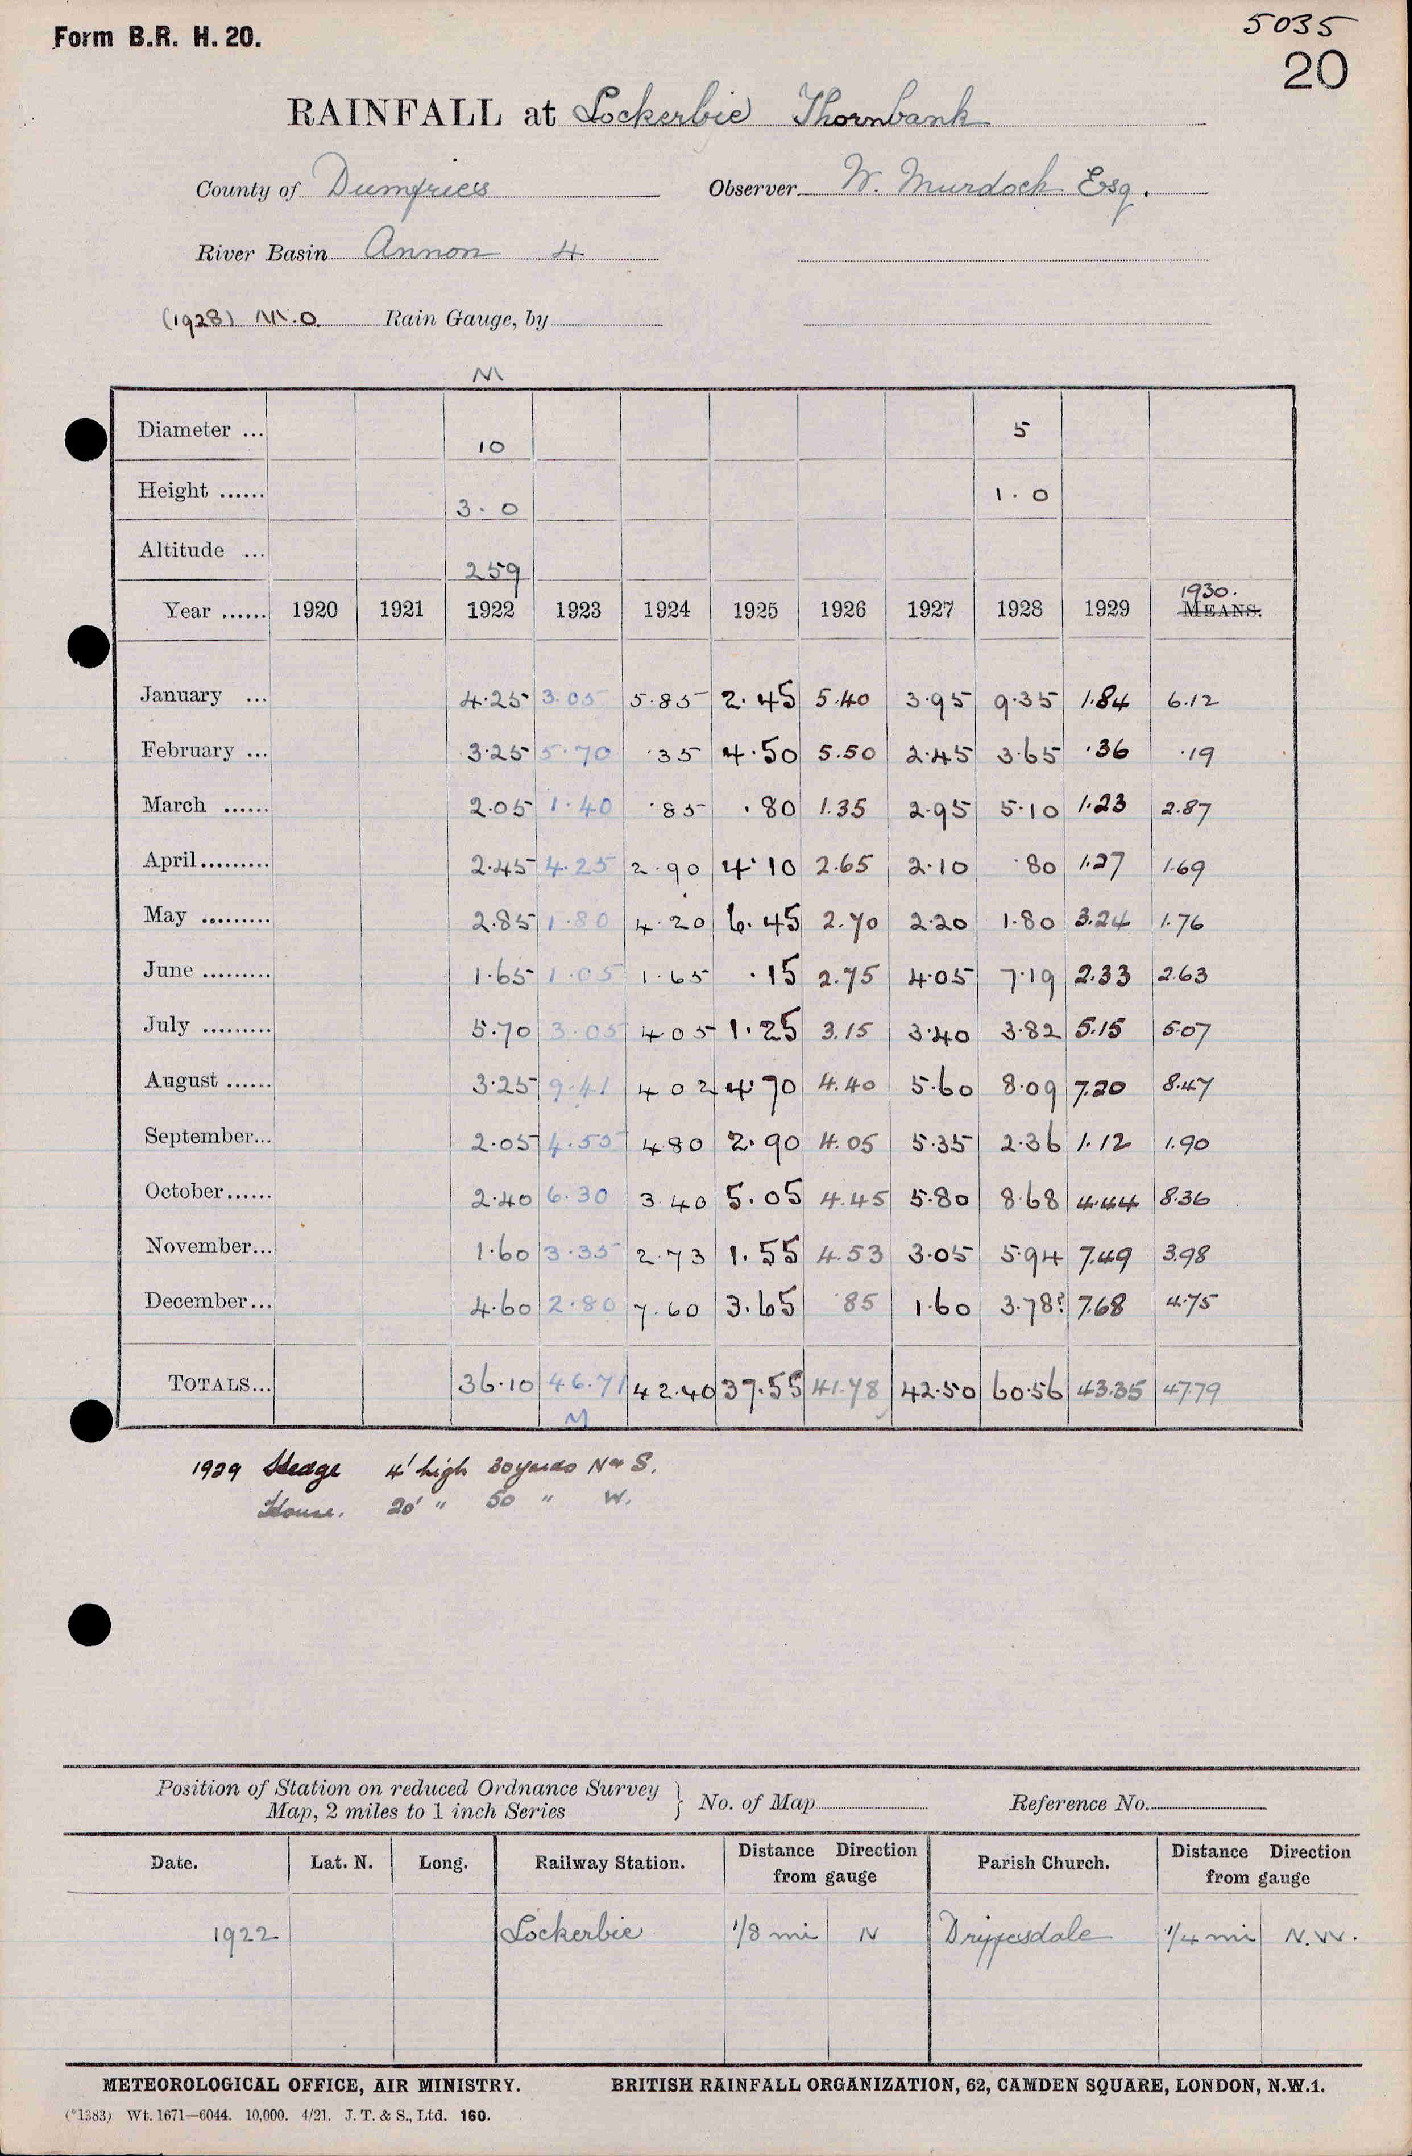 Form B.R. H. 20.
5035
20
RAINFALL at Lockerbie Thornbank
County of Dumfries Observer W. Murdoch Esq.
River Basin Annan 4
(1928) M.O. Rain Gauge, by
M
Diameter ... 10 5
Height ...... 3.0 1.0
Altitude ... 259
1930.
Year ...... 1920 1921 1922 1923 1924 1925 1926 1927 1928 1929 MEANS.
January ... 4.25 3.05 5.85 2.45 5.40 3.95 9.35 1.84 6.12
February ... 3.25 5.70 .35 4.50 5.50 2.45 3.65 .36 .19
March ...... 2.05 1.40 .85 .80 1.35 2.95 5.10 1.23 2.87
April ......... 2.45 4.25 2.90 4.10 2.65 2.10 .80 1.27 1.69
May ......... 2.85 1.80 4.20 6.45 2.70 2.20 1.80 3.24 1.76
June ......... 1.65 1.05 1.65 .15 2.75 4.05 7.19 2.33 2.63
July ......... 5.70 3.05 4.05 1.25 3.15 3.40 3.82 5.15 5.07
August ...... 3.25 9.41 4.02 4.70 4.40 5.60 8.09 7.20 8.47
September... 2.05 4.55 4.80 2.90 4.05 5.35 2.36 1.12 1.90
October ...... 2.40 6.30 3.40 5.05 4.45 5.80 8.68 4.44 8.36
November... 1.60 3.35 2.73 1.55 4.53 3.05 5.94 7.49 3.98
December... 4.60 2.80 7.60 3.65 .85 1.60 3.78? 7.68 4.75
TOTALS... 36.10 46.71 42.40 37.55 41.78 42.50 60.56 43.35 47.79
M
1929 Hedge 4' high 30 yards N & S.
House. 20' " 50 " W.
Position of Station on reduced Ordnance Survey
Map, 2 miles to 1 inch Series } No. of Map Reference No.
Date. Lat. N. Long. Railway Station. Distance Direction from gauge Parish Church. Distance Direction from gauge
1922 Lockerbie 1/8 mi N Dryfesdale 1/4 mi N.W.
METEOROLOGICAL OFFICE, AIR MINISTRY. BRITISH RAINFALL ORGANIZATION, 62, CAMDEN SQUARE, LONDON, N.W.1.
(*1383) Wt. 1671—6044. 10,000. 4/21. J. T. & S., Ltd. 160.